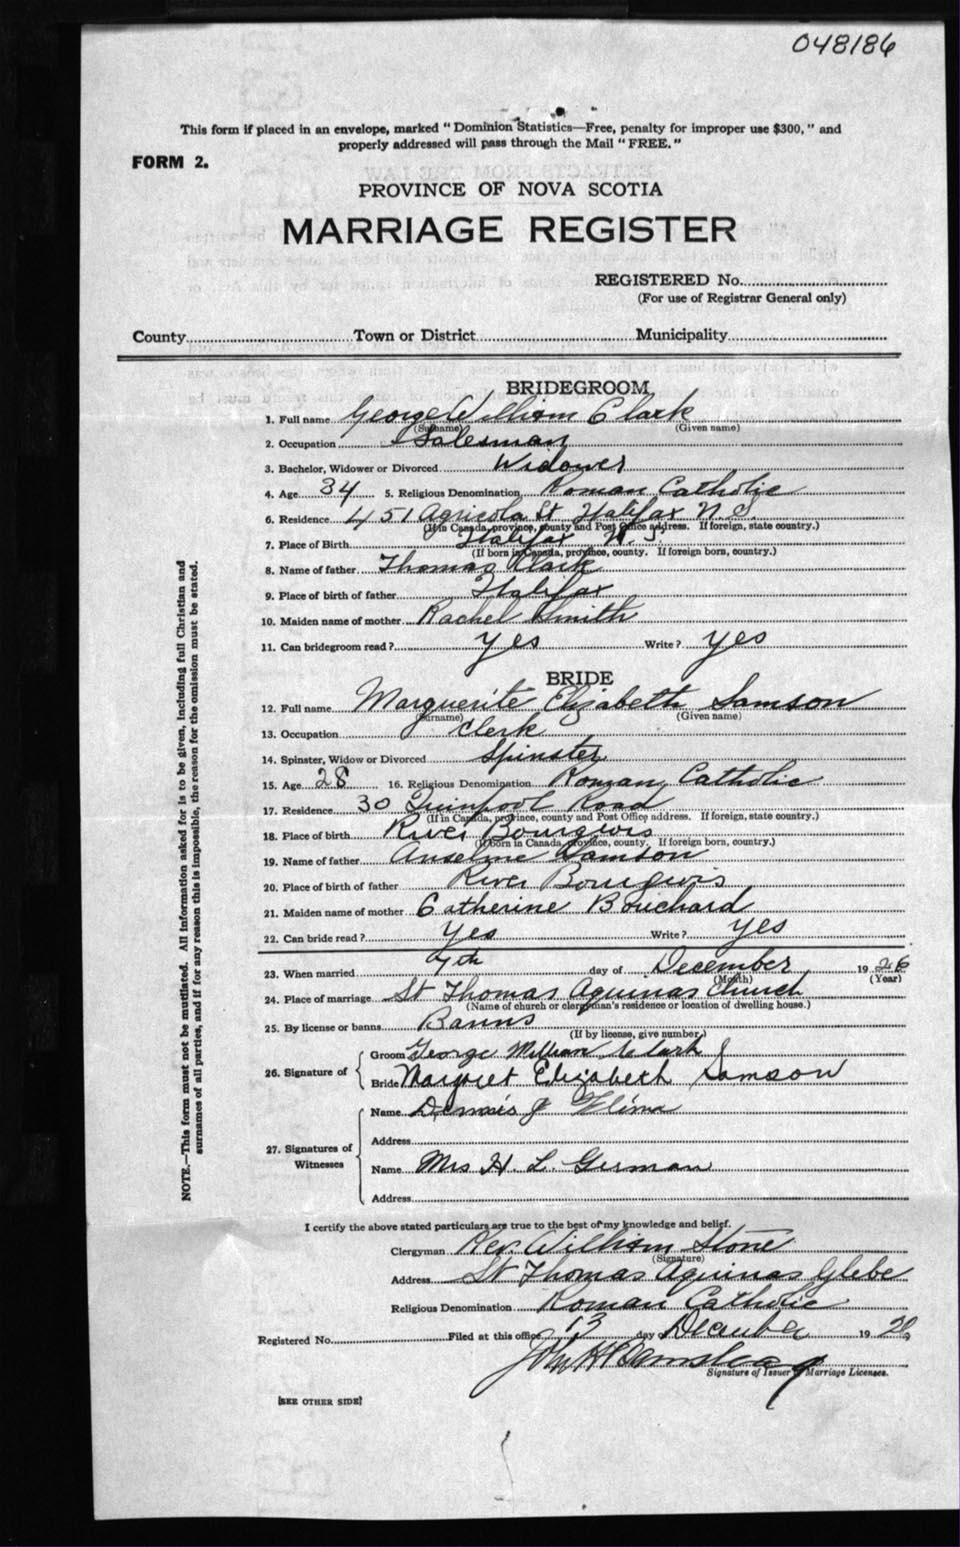 048186
This form if placed in an envelope, marked "Dominion Statistics—Free, penalty for improper use $300," and
properly addressed will pass through the Mail "FREE."
FORM 2.
PROVINCE OF NOVA SCOTIA
MARRIAGE REGISTER
REGISTERED No.
(For use of Registrar General only)
County Town or District Municipality
BRIDEGROOM
1. Full name George William Clark
(Surname) (Given name)
2. Occupation Salesman
3. Bachelor, Widower or Divorced Widower
4. Age 34 5. Religious Denomination Roman Catholic
6. Residence 451 Agricola St Halifax N.S.
(If in Canada, province, county and Post Office address. If foreign, state country.)
7. Place of Birth Halifax N.S.
(If born in Canada, province, county. If foreign born, country.)
8. Name of father Thomas Clark
9. Place of birth of father Halifax
10. Maiden name of mother Rachel Smith
11. Can bridegroom read? Yes Write? Yes
BRIDE
12. Full name Marguerite Elizabeth Samson
(Surname) (Given name)
13. Occupation Clerk
14. Spinster, Widow or Divorced Spinster
15. Age 28 16. Religious Denomination Roman Catholic
17. Residence 30 Quinpool Road
(If in Canada, province, county and Post Office address. If foreign, state country.)
18. Place of birth River Bourgeois
(If born in Canada, province, county. If foreign born, country.)
19. Name of father Anselme Samson
20. Place of birth of father River Bourgeois
21. Maiden name of mother Catherine Bouchard
22. Can bride read? Yes Write? Yes
23. When married 7th day of December 1926
(Month) (Year)
24. Place of marriage St Thomas Aquinas Church
(Name of church or clergyman's residence or location of dwelling house.)
25. By license or banns Banns
(If by license, give number.)
26. Signature of
Groom George William Clark
Bride Margret Elizabeth Samson
27. Signatures of Witnesses
Name Dennis J
Address
Name Mrs H. L. German
Address
I certify the above stated particulars are true to the best of my knowledge and belief.
Clergyman Rev. William Stone
(Signature)
Address St Thomas Aquinas Glebe
Religious Denomination Roman Catholic
Registered No. Filed at this office 13 day of December 1926
John H
Signature of Issuer of Marriage Licenses.
[SEE OTHER SIDE]
NOTE.—This form must not be mutilated. All information asked for is to be given, including full Christian and
surnames of all parties, and if for any reason this is impossible, the reason for the omission must be stated.